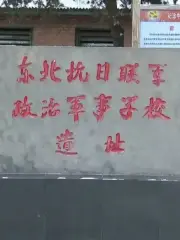 东北抗日联军
政治军事学校
遗址